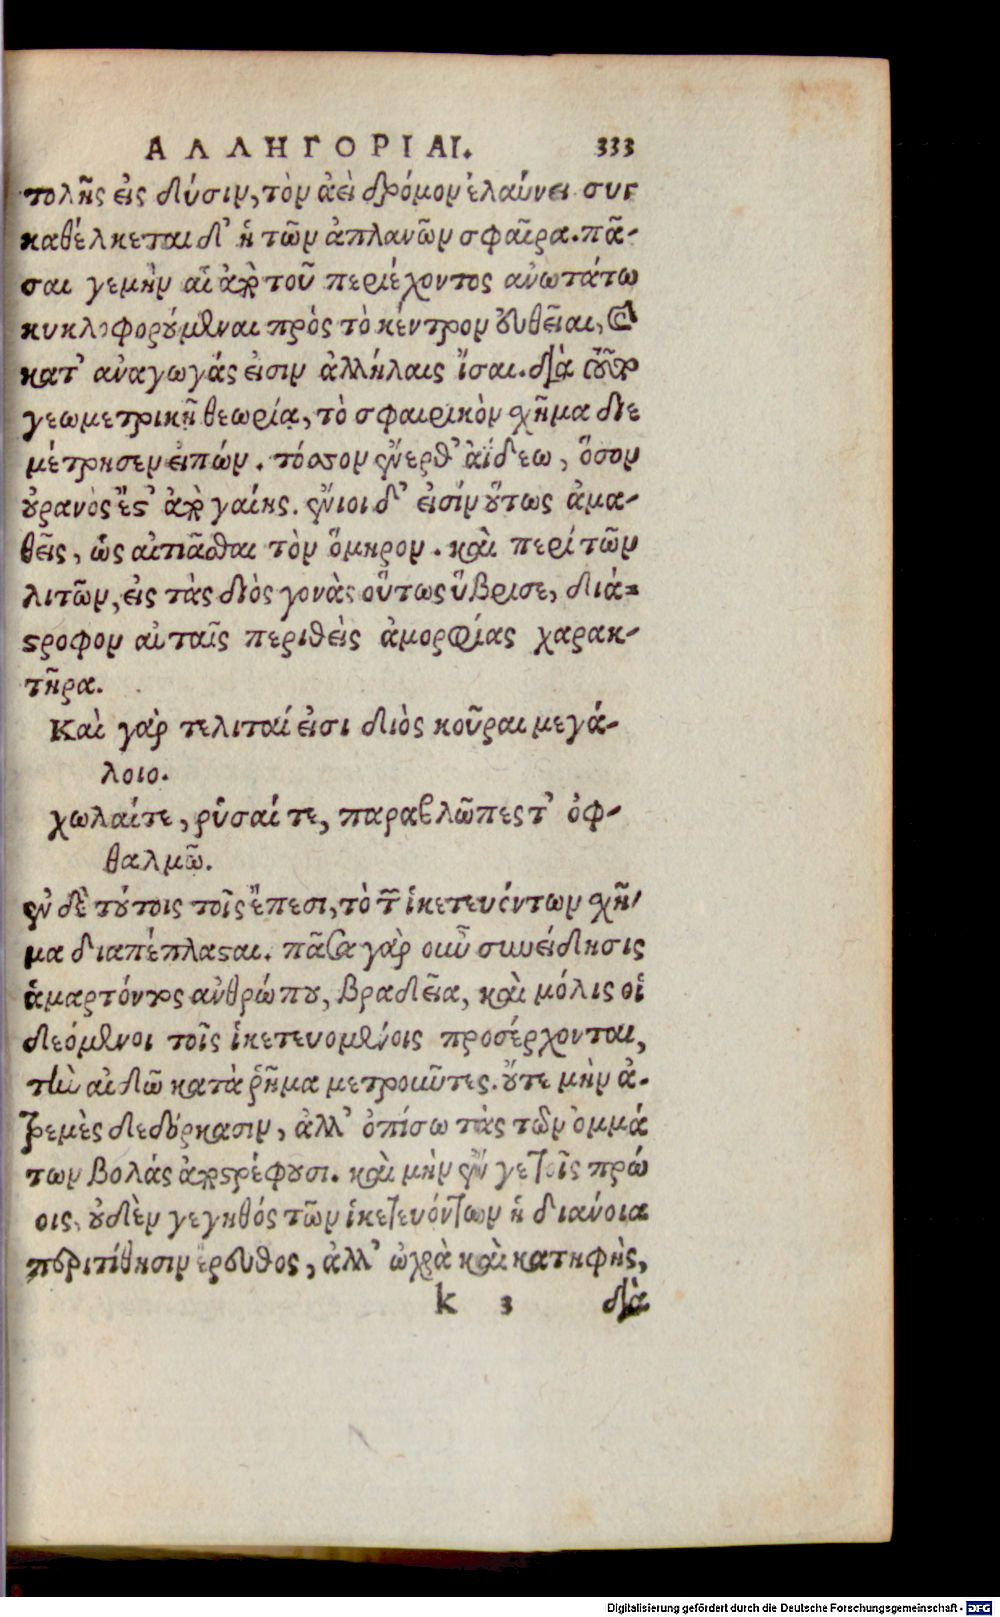 ΑΛΛΗΓΟΡΙΑΙ. 333
τολῆς εἰς δύσιν, τὸν ἀεὶ δρόμον ἐλαύνει συγ
καθέλκεται δ' ἡ τῶν ἀπλανῶν σφαῖρα. πᾶ-
σαι γεμὴν αἱ ἀπὸ τοῦ περιέχοντος ανωτάτω
κυκλοφορούμεναι πρὸς τὸ κέντρον εὐθεῖαι, καὶ
κατ' αναγωγάς εἰσιν ἀλλήλαις ἴσαι. διὰ τοῦτο
γεωμετρικῇ θεωρίᾳ, τὸ σφαιρικὸν σχῆμα διε
μέτρησεν εἰπών. τόσσον ἔνερθ' ἀΐδεω, ὅσον
οὐρανὸς ἔστ' ἀπὸ γαίης. ἔνιοι δ' εἰσίν οὕτως ἀμα-
θεῖς, ὡς αἰτιᾶσθαι τὸν ὅμηρον. καὶ περί τῶν
λιτῶν, εἰς τὰς διὸς γονὰς οὕτως ὕβρισε, διά-
στροφον αὐταῖς περιθεὶς ἀμορφίας χαρακ-
τῆρα.
Καὶ γάρ τελιταί εἰσι διὸς κοῦραι μεγά-
λοιο.
χωλαίτε, ῥύσαί τε, παραβλῶπεςτ' ὀφ-
θαλμῶ.
ἐν δὲ τούτοις τοῖς ἔπεσι, τὸ τῶν ἱκετευόντων σχῆ-
μα διαπέπλασται. πᾶσα γὰρ οὖν συνείδησις
ἁμαρτόντος ανθρώπου, βραδεῖα, καὶ μόλις οἱ
δεόμενοι τοῖς ἱκετευομένοις προσέρχονται,
τὴν αἰδῶ κατὰ ῥῆμα μετροῦντες. οὔτε μὴν ἀ-
τρεμὲς δεδόρκασιν, ἀλλ' ὀπίσω τὰς τῶν ὀμμά
των βολάς ἀποστρέφουσι. καὶ μὴν ἔν γε τοῖς πρώ
οις, οὐδὲν γεγηθός τῶν ἱκετευόντων ἡ διανόια
περιτίθησιν ἔρευθος, ἀλλ' ὠχρὰ καὶ κατηφὴς,
k 3 διὰ
Digitalisierung gefördert durch die Deutsche Forschungsgemeinschaft - DFG